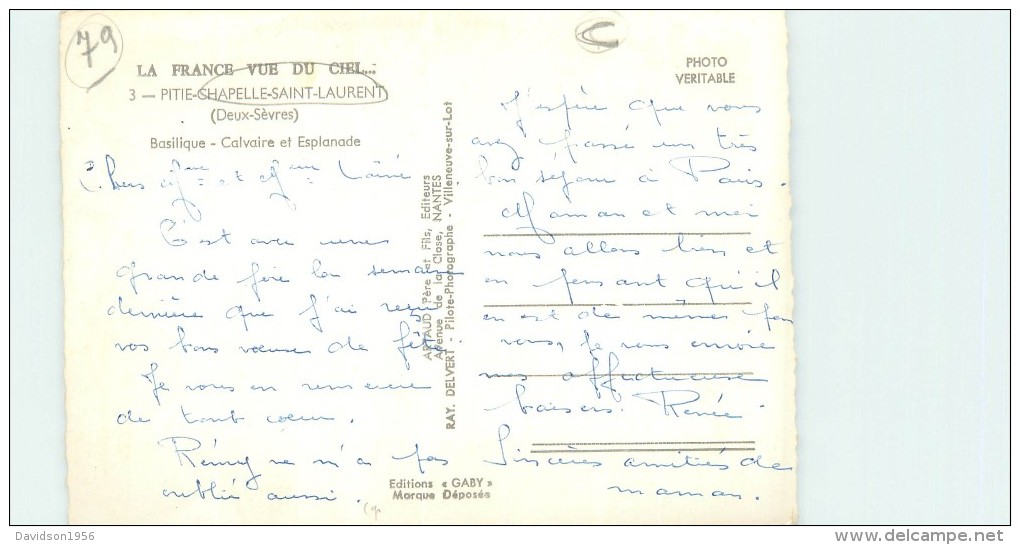 79
LA FRANCE VUE DU CIEL...
3 — PITIE-CHAPELLE-SAINT-LAURENT
(Deux-Sèvres)
Basilique - Calvaire et Esplanade
Chers Mme et Mr
C'est avec une
grande joie la semaine
dernière que j'ai reçu
vos bons vœux de fête.
Je vous en remercie
de tout cœur.
Rémy ne m'a pas
oublié aussi.
ARTAUD Père et Fils, Editeurs
Avenue de la Close, NANTES
RAY. DELVERT - Pilote-Photographe - Villeneuve-sur-Lot
Editions « GABY »
Marque Déposée
PHOTO
VERITABLE
J'espère que vous
avez passé un très
bon séjour à Paris.
Maman et moi
nous allons bien et
en pensant qu'il
en est de même pour
vous, je vous envoie
mes affectueuse
baisers. Renée
Sincères amitiés de
maman.
Davidson1956
delcampe.net